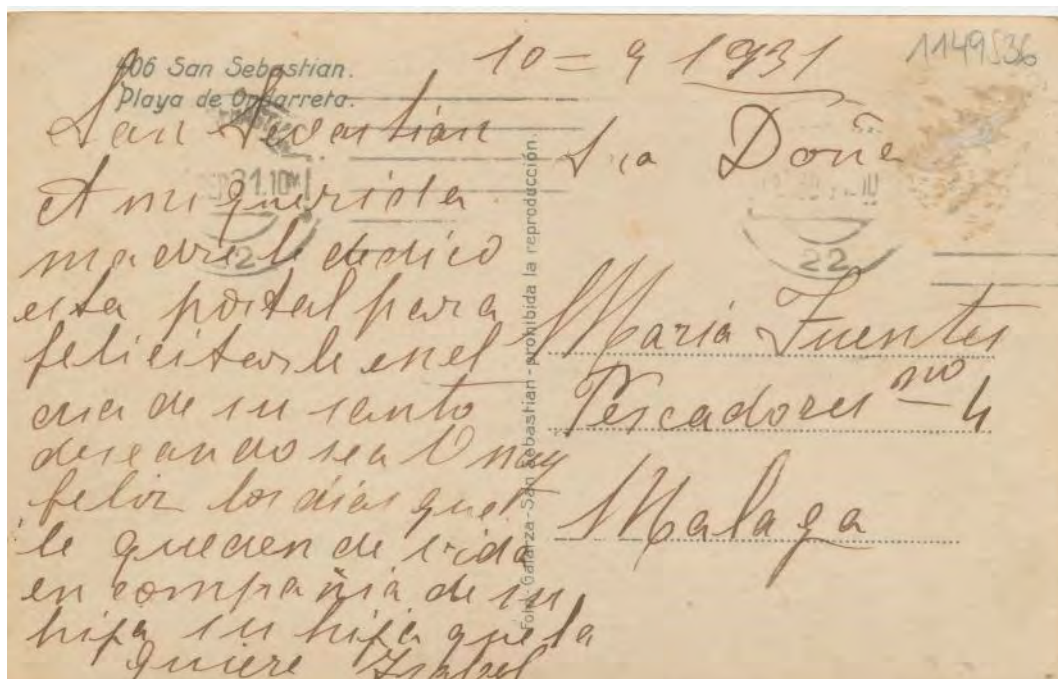 906 San Sebastian.
Playa de Ondarreta.
10 = 9 1931
1149536
San Sebastian
A mi querida
madre le dedico
esta postal para
felicitarle en el
dia de su santo
deseando sea V muy
feliz los dias que
le queden de vida
en compañia de su
hija su hija que la
quiere Isabel
Foto. Galarza-San Sebastian-prohibida la reproducción.
Sra Doña
Maria Fuentes
Pescadores no 4
Malaga
22
22